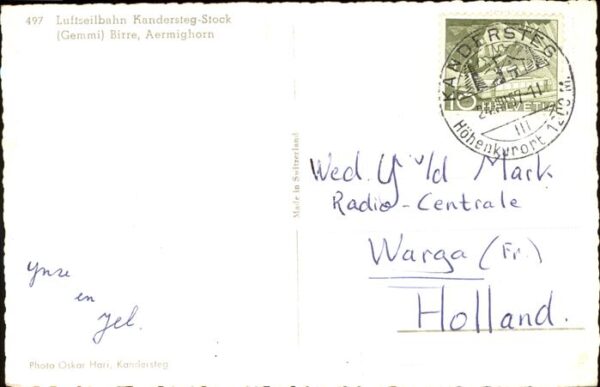 497 Luftseilbahn Kandersteg-Stock
(Gemmi) Birre, Aermighorn
KANDERSTEG
Höhenkurort 1200 M.
III
10
HELVETIA
Made in Switzerland
Wed. Y v/d Mark
Radio-Centrale
Warga (Fr.)
Holland.
Ynze
en
Jel.
Photo Oskar Hari, Kandersteg